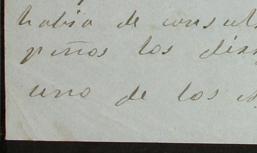 habia de consul
piños los dis
uno de los